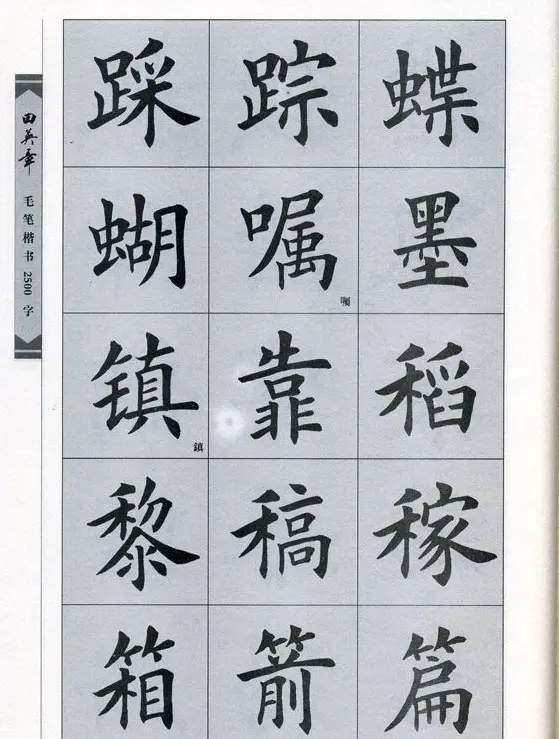 田英章
毛笔楷书2500字
踩踪蝶
蝴嘱墨
囑
镇靠稻
鎮
黎稿稼
箱箭篇